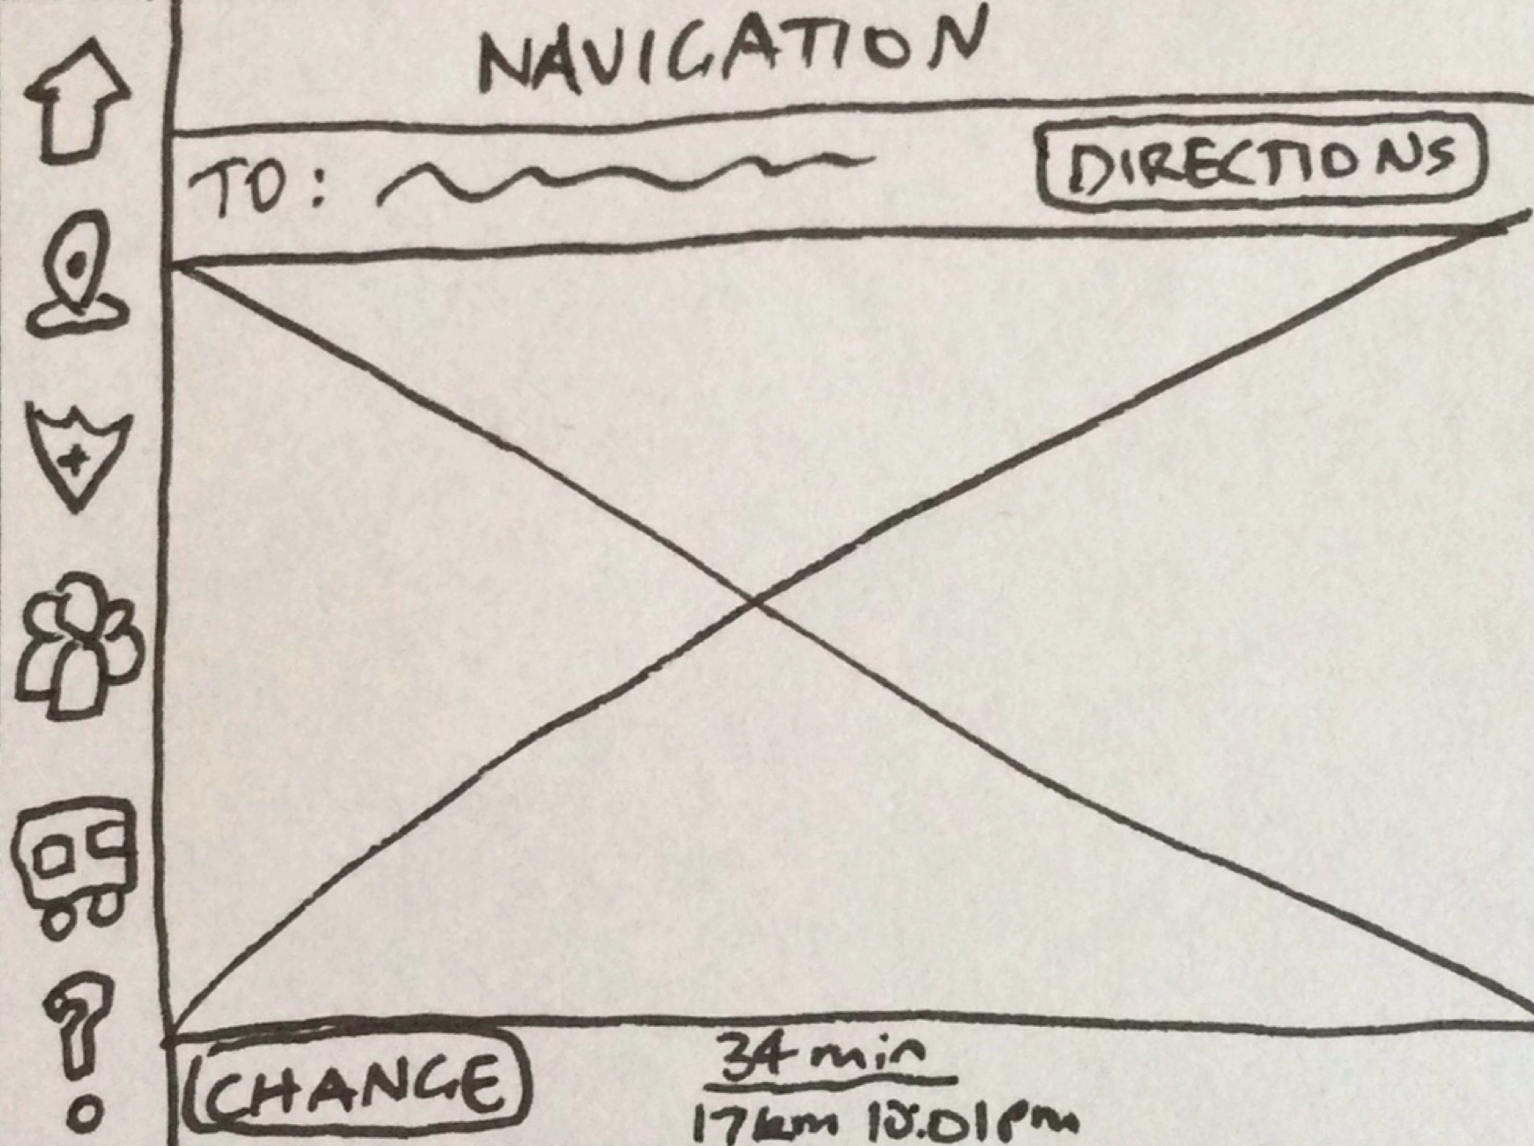 NAVIGATION
TO:
DIRECTIONS
?
CHANGE
34 min
17km